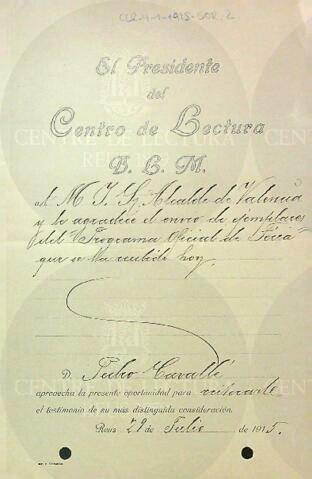 CL2-4-1-1915-SOR. 2
El Presidente
del
Centro de Lectura
B. L. M.
al M. I. Sr. Alcalde de Valencia
y le agradece el envio de ejemplares
del "Programa Oficial de Feria"
que se ha recibido hoy.
D. Pedro Cavallé
aprovecha la presente oportunidad para reiterarle
el testimonio de su más distinguida consideración.
Reus 29 de Julio de 1915.
CENTRE DE LECTURA